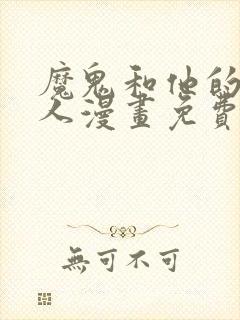 魔鬼和他的
人漫畫免費
無可不可